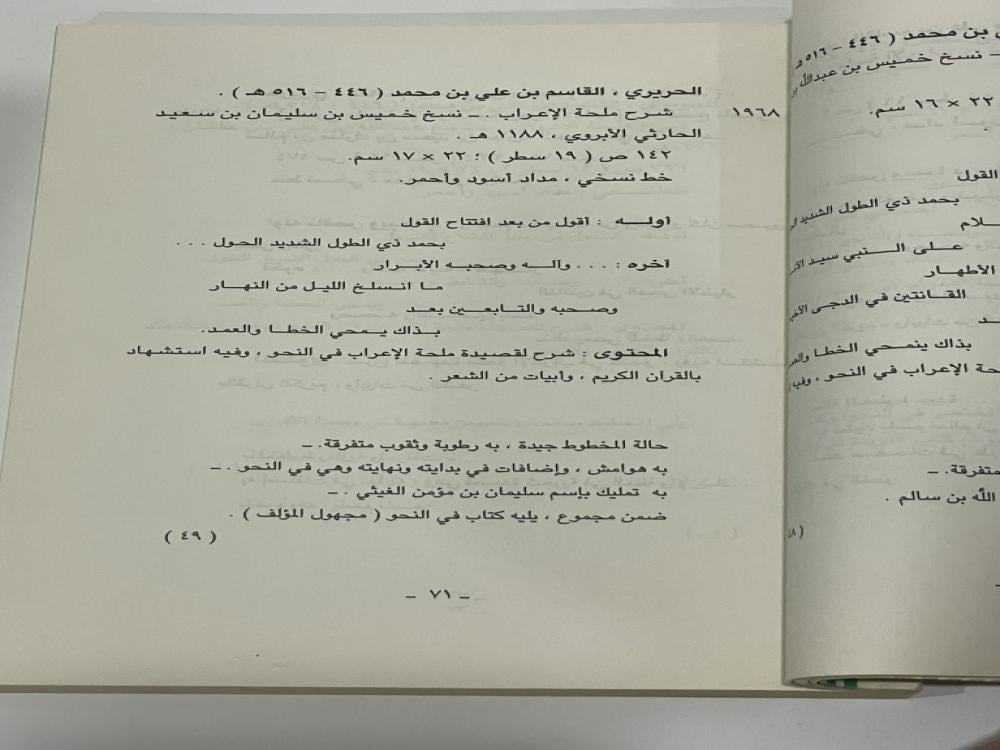 الحريري ، القاسم بن علي بن محمد ( ٤٤٦ – ٥١٦ هـ ) .
١٩٦٨ شرح ملحة الإعراب . ـ نسخ خميس بن سليمان بن سعيد
الحارثي الأبروي ، ١١٨٨ هـ .
١٤٢ ص ( ١٩ سطر ) ؛ ٢٢ × ١٧ سم.
خط نسخي ، مداد أسود وأحمر.
أولـــه : أقول من بعد افتتاح القول
بحمد ذي الطول الشديد الحول . . .
آخره : . . . وآلـــه وصحبـه الأبـرار
مـا انـسلـخ الليـل من النهـار
وصـحبه والتـابـعـين بـعـد
بـذاك يـمـحي الخطـا والعمد.
المحتوى : شرح لقصيدة ملحة الإعراب في النحو ، وفيه استشهاد
بالقرآن الكريم ، وأبيات من الشعر .
حالة المخطوط جيدة ، به رطوبة وثقوب متفرقة. ـ
به هوامش ، وإضافات في بدايته ونهايته وهي في النحو . ـ
به تمليك بإسم سليمان بن مؤمن الغيثي . ـ
ضمن مجموع ، يليه كتاب في النحو ( مجهول المؤلف ) .
( ٤٩ )
ـ ٧١ ـ
بن محمد ( ٤٤٦ – ٥١٦ هـ
ـ نسخ خميس بن عبدالله
٢٢ × ١٦ سم.
القول
بحمد ذي الطول الشديد
ـلام
على الـنـبي سيد
الأطهـار
القـانتين في الدجـى
ـد
بذاك ينمحي الخطـا
حة الإعراب في النحو ،
متفرقة. ـ
الله بن سالم .